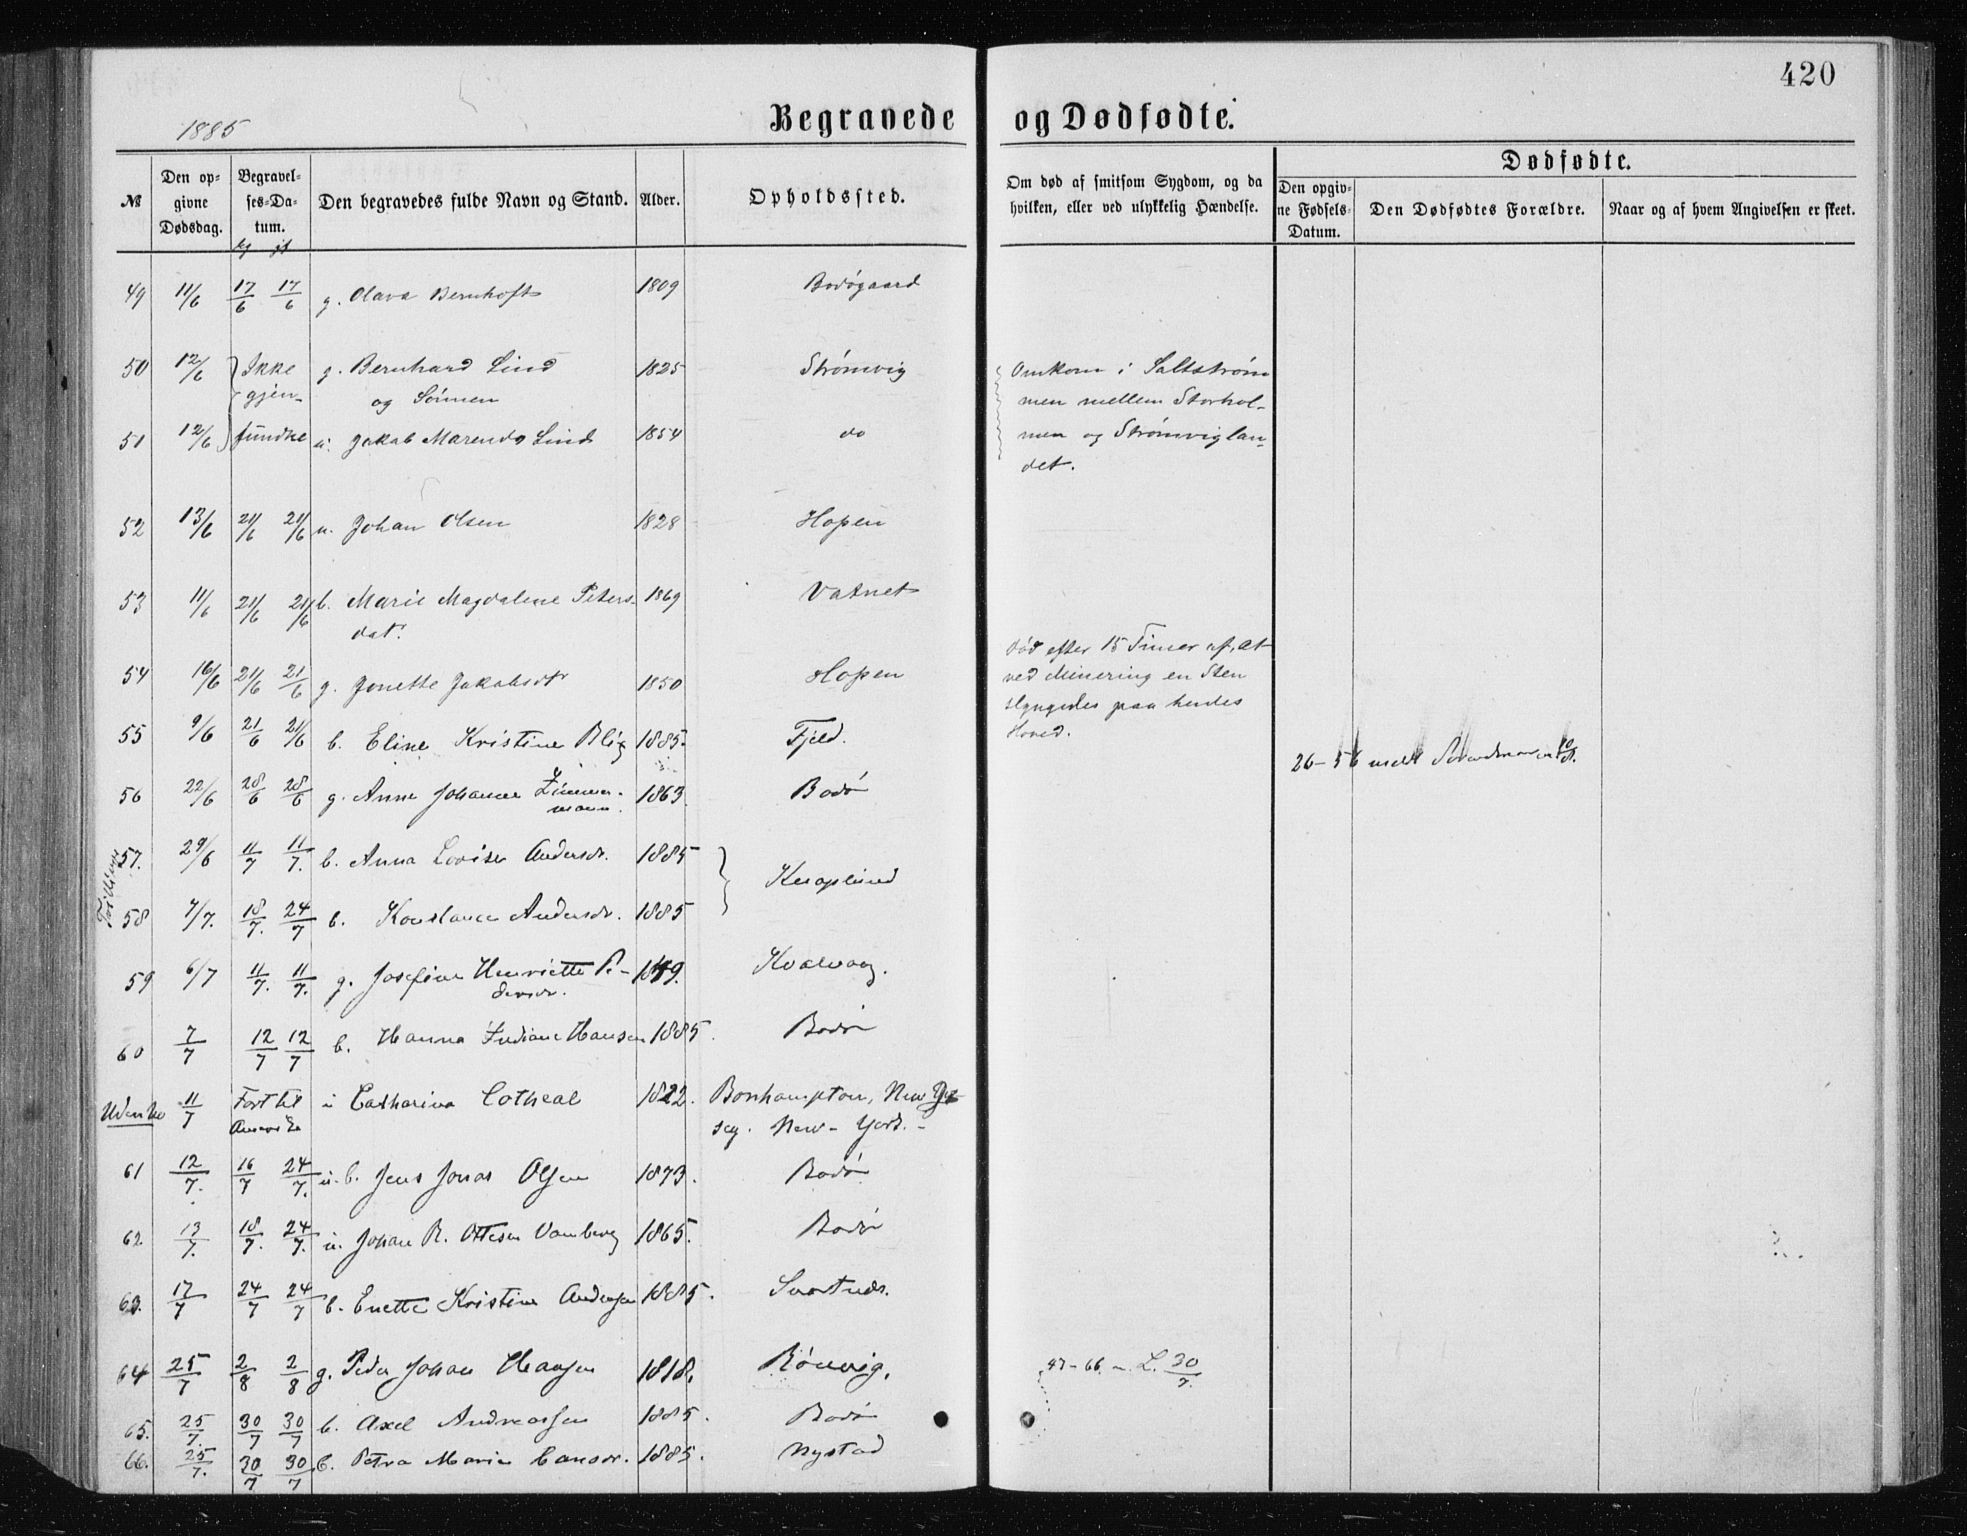 420
1885
Begravede og Dødfødte.
№ Den opgivne Dødsdag. Begravelses-Datum. Den begravedes fulde Navn og Stand. Alder. Opholdssted. Om død af smitsom Sygdom, og da hvilken, eller ved ulykkelig Hændelse. Dødfødte. Den opgivne Fødsels-Datum. Den Dødfødtes Forældre. Naar og af hvem Angivelsen er skeet.
49 11/6 17/6 17/6 g. Olava Bernhoft 1809 Bodøgaard
50 12/6 Ikke g. Bernhard Lind 1825 Strømvig Omkom i Saltstrøm
gjen- og Sønnen men mellem Storhol-
51 12/6 fundne u. Jakob Marends Lind 1854 do men og Strømviglan-
det.
52 13/6 21/6 21/6 u. Johan Olsen 1828 Hopen
53 11/6 21/6 21/6 b. Marie Magdalene Peters- 1869 Vatnet
dat.
Død efter 15 Timer af, at
54 16/6 21/6 21/6 g. Jonette Jakobsdtr 1850 Hopen ved Minering en Sten
slyngedes paa hendes
55 9/6 21/6 21/6 b. Eline Kristine Blix 1885. Fjeld. Hoved.
26-56 meldt
56 22/6 28/6 28/6 g. Anne Johanne Zimmer- 1863. Bodø
mann.
Tvillinger
57. 29/6 11/7 11/7. b. Anna Lovise Andersdr. 1885
58 7/7. 18/7. 24/7 b. Konstance Andersdr. 1885
59 6/7 11/7. 11/7. g. Josefine Henriette Pe- Kvalvaag.
dersdr.
60 7/7 12/7 12/7 b. Hanna Indiane Hansen 1885. Bodø
Uden No 11/7 Ført til u Catharina Cotheal 1822. Bonhampton, New Yer
Amerika sey. New-York.-
61 12/7. 16/7 24/7. u. b. Jens Jonas Olsen 1873. Bodø
62 13/7. 18/7. 24/7. u. Johan R. Ottesen Vamberg 1865. Bodø
63. 17/7 24/7 24/7 b. Enette Kristine Andersen 1885.
64 25/7 2/8 2/8 g. Peder Johan Hansen 1818. Rønvig. 47-66. L. 30/7.
65. 25/7. 30/7 30/7 b. Axel Andreassen 1885. Bodø
66. 25/7. 30/7 30/7 b. Petra Marie Hansdr. 1885. Nystad